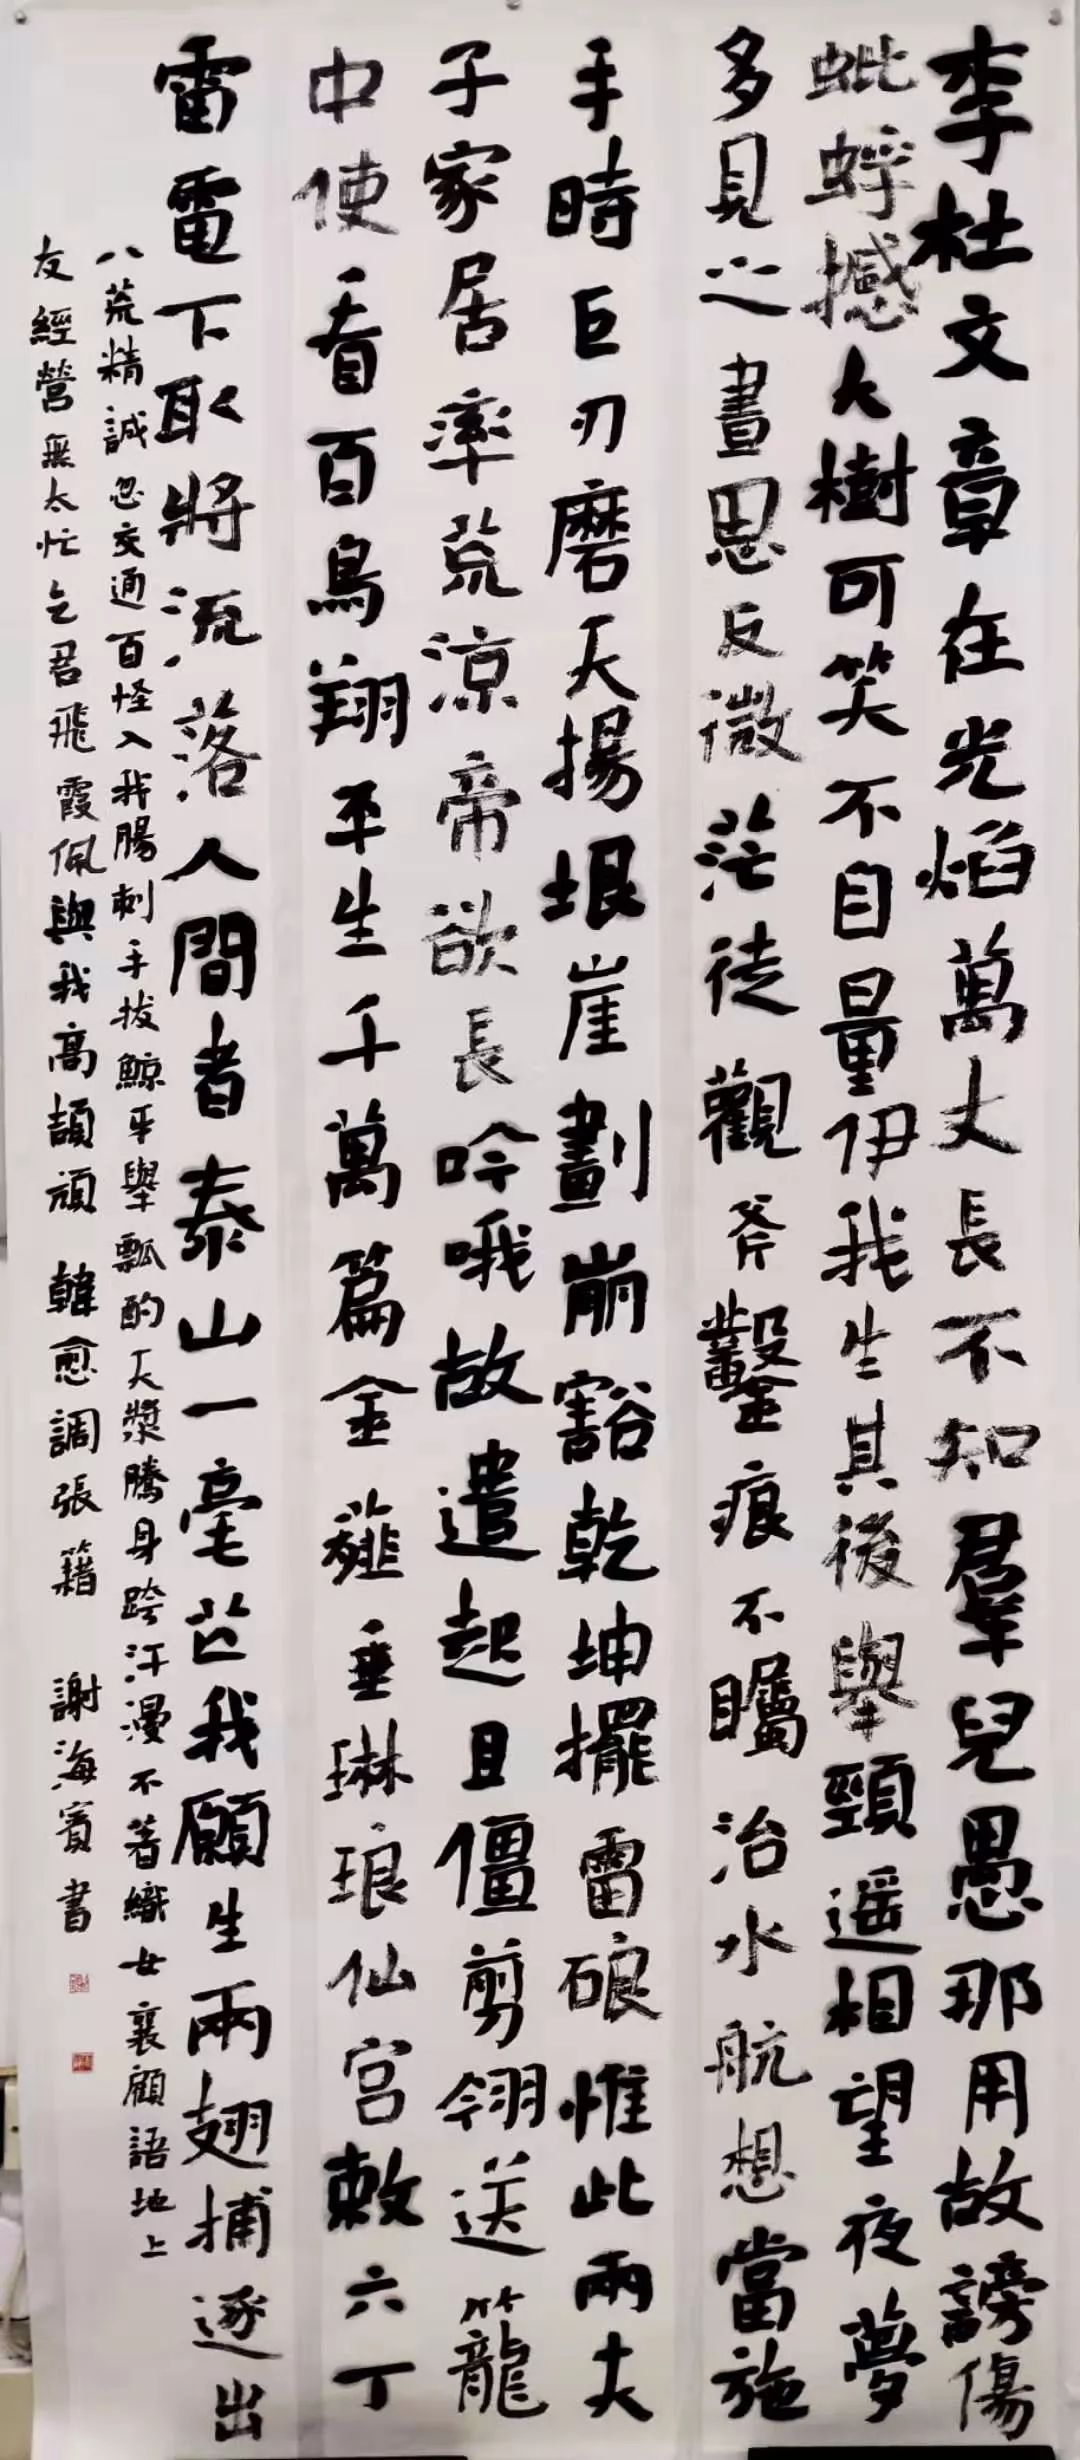 李杜文章在光焰萬丈長不知羣兒愚那用故謗傷
蚍蜉撼大樹可笑不自量伊我生其後舉頸遥相望夜夢
多見之晝思反微茫徒觀斧鑿痕不矚治水航想當施
手時巨刃磨天揚垠崖劃崩豁乾坤擺雷硠惟此兩夫
子家居率荒涼帝欲長吟哦故遣起且僵剪翎送籠
中使看百鳥翔平生千萬篇金薤垂琳琅仙宫敕六丁
雷電下取將流落人間者泰山一毫芒我願生兩翅捕逐出
八荒精誠忽交通百怪入我腸刺手拔鯨牙舉瓢酌天漿騰身跨汗漫不著織女襄顧語地上
友經營無太忙乞君飛霞佩與我高頡頏 韓愈調張籍 謝海賓書